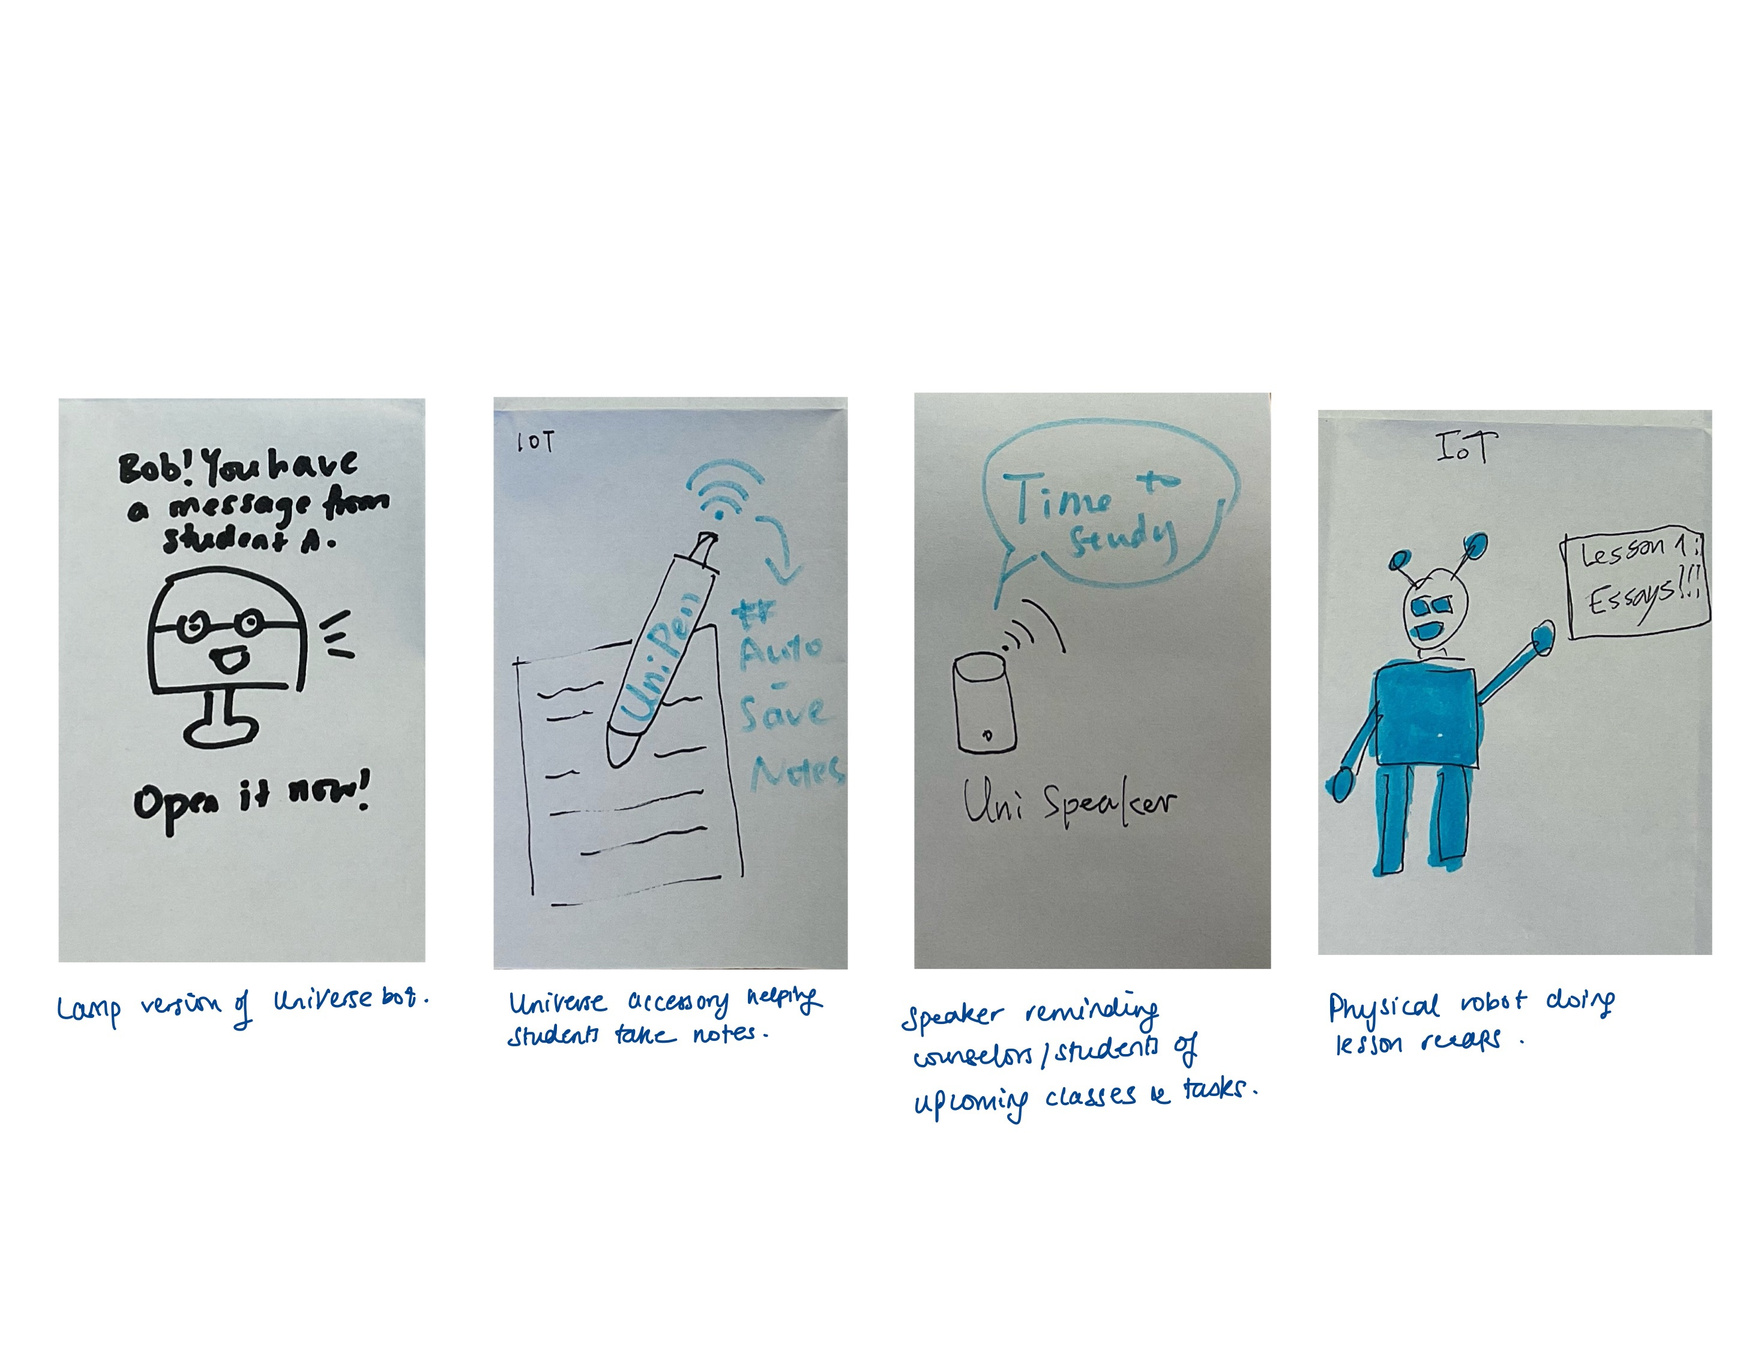 Bob! You have
a message from
student A.
Open it now!
Lamp version of Universe bot.
IOT
UniPen
Auto
-
Save
Notes
Universe accessory helping
students take notes.
Time to
study
Uni Speaker
Speaker reminding
counselors/students of
upcoming classes & tasks.
IoT
Lesson 1:
Essays!!!
Physical robot doing
lesson recaps.